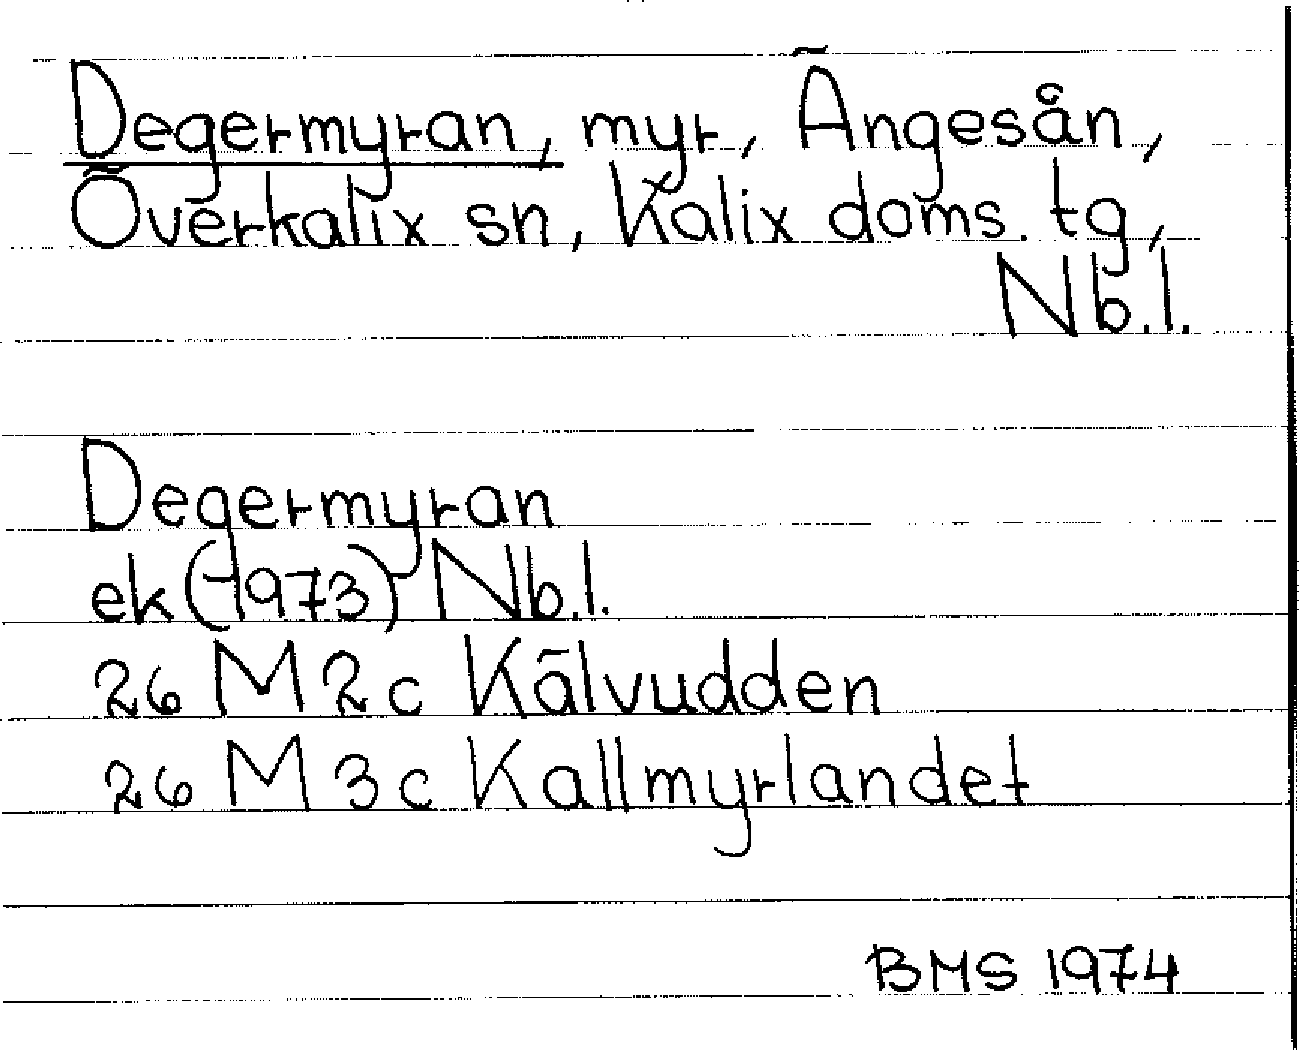 Degermyran, myr, Ängesån,
Överkalix sn, Kalix doms. tg,
Nb.l.
Degermyran
ek (1973) Nb.l.
26 M 2 c Kälvudden
26 M 3 c Kallmyrlandet
BMS 1974